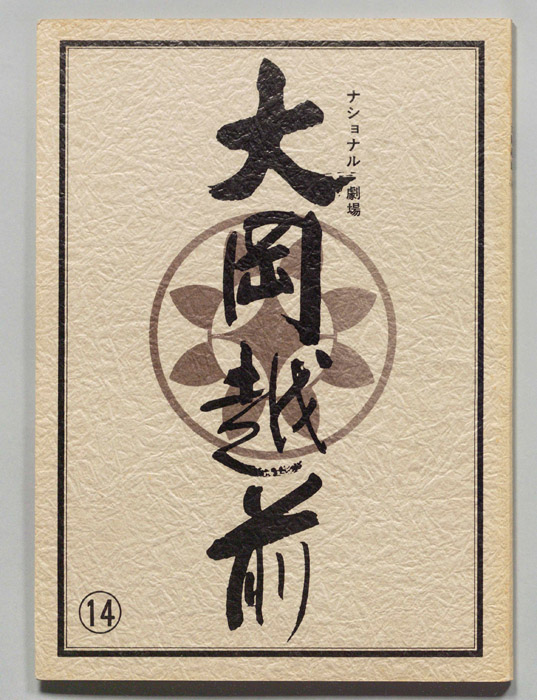 ナショナル劇場
大岡越前
⑭